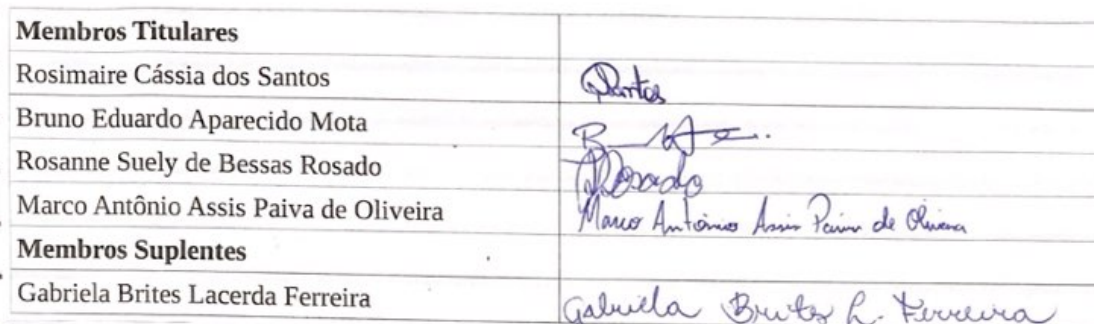 Membros Titulares
Rosimaire Cássia dos Santos Santos
Bruno Eduardo Aparecido Mota
Rosanne Suely de Bessas Rosado Rosado
Marco Antônio Assis Paiva de Oliveira Marco Antônio Assis Paiva de Oliveira
Membros Suplentes
Gabriela Brites Lacerda Ferreira Gabriela Brites L. Ferreira